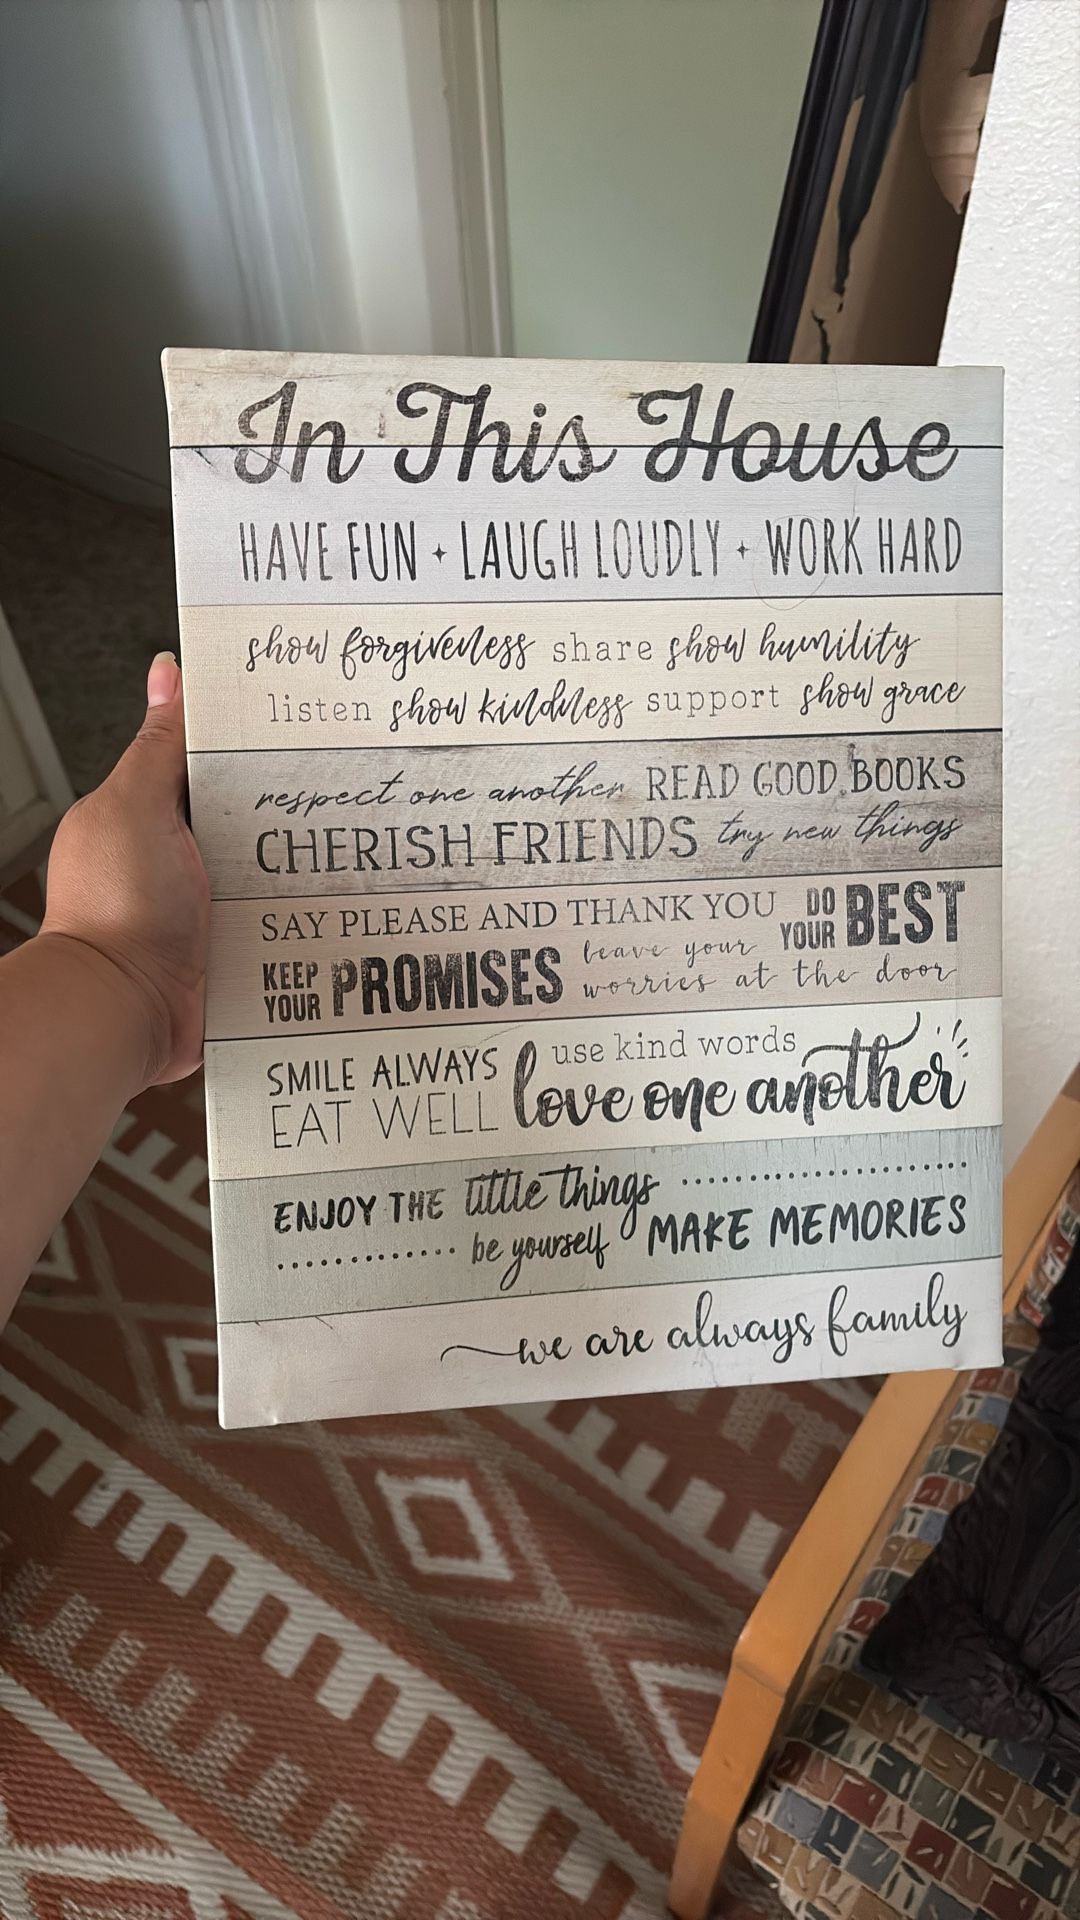 In This House
HAVE FUN ✦ LAUGH LOUDLY ✦ WORK HARD
show forgiveness share show humility
listen show kindness support show grace
respect one another READ GOOD BOOKS
CHERISH FRIENDS try new things
SAY PLEASE AND THANK YOU DO YOUR BEST
KEEP YOUR PROMISES leave your worries at the door
SMILE ALWAYS use kind words
EAT WELL love one another
ENJOY THE little things
be yourself MAKE MEMORIES
we are always family